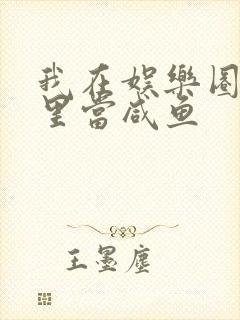 我在娱樂圈
里當咸鱼
王墨塵